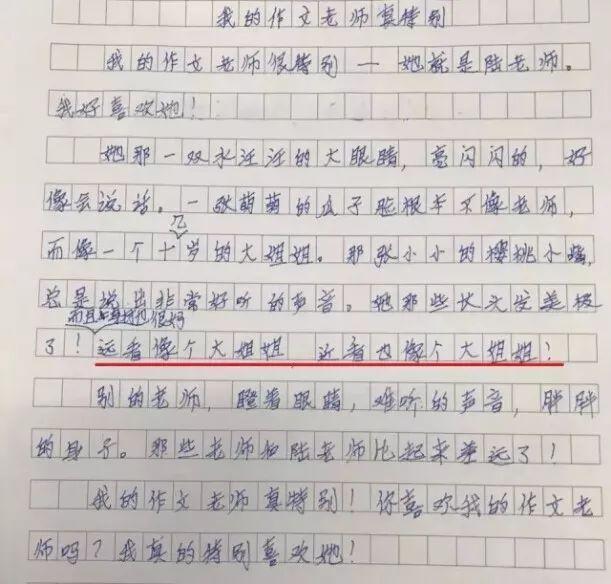 我的作文老师真特别
我的作文老师很特别一她就是陆老师。
我好喜欢她！
她那一双水汪汪的大眼睛，亮闪闪的，好
像会说话。一张萌萌的瓜子脸根本不像老师，
几
而像一个十岁的大姐姐。那张小小的樱桃小嘴，
总是说出非常好听的声音。她那些长头发美极
而且身材也很好
了！远看像个大姐姐 近看也像个大姐姐！
别的老师，瞪着眼睛，难听的声音，胖胖
的身子。那些老师和陆老师比起来差远了！
我的作文老师真特别！你喜欢我的作文老
师吗？我真的特别喜欢她！